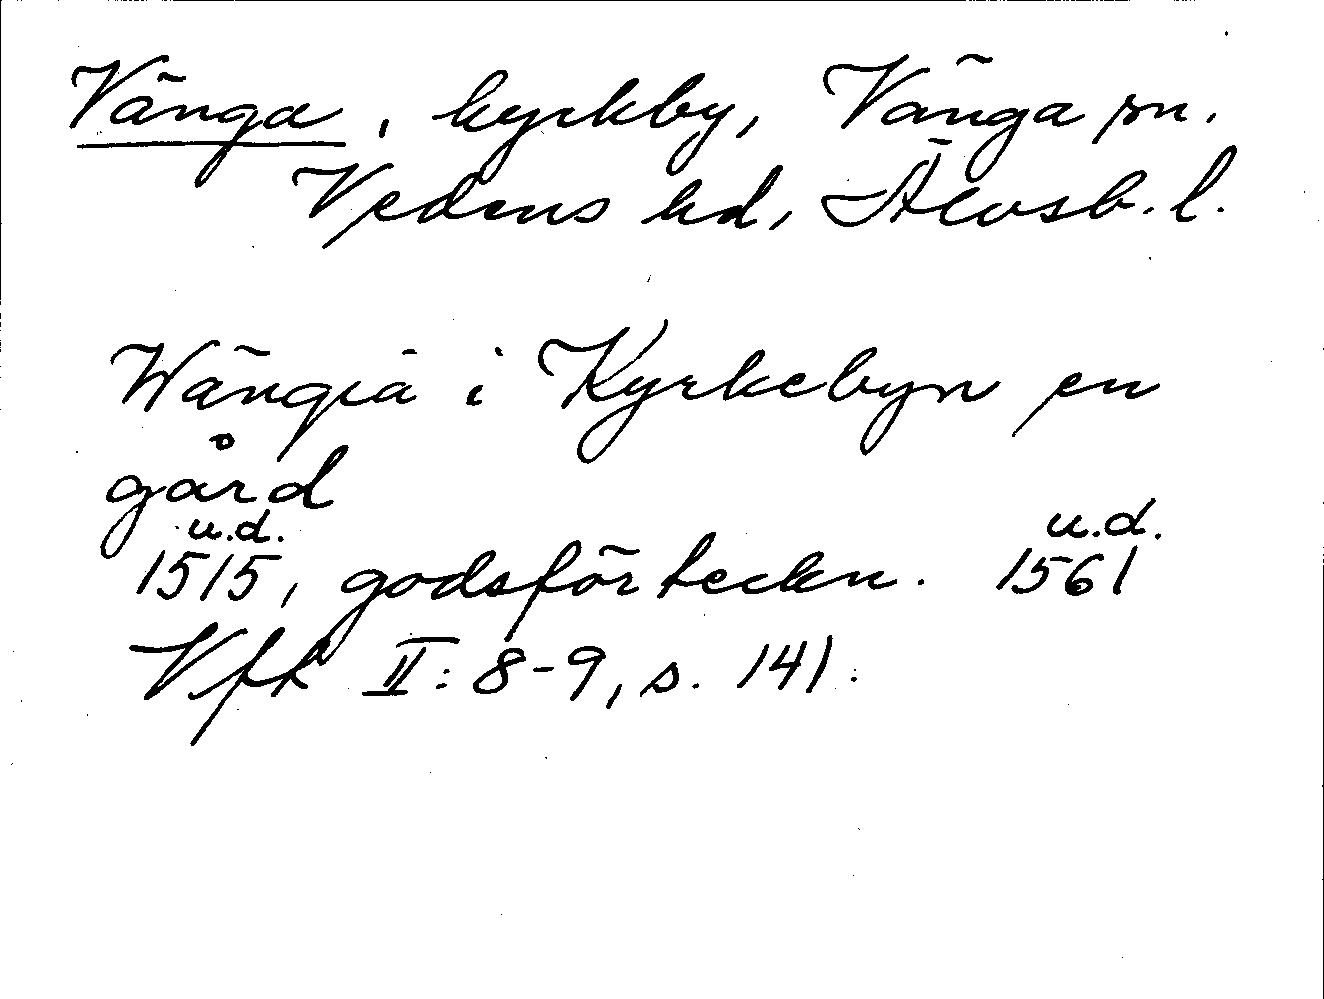 Vänga, kyrkby, Vänga sn.
Vedens hd, Älvsb. l.
Wängiä i Kyrkebyn en
gård
u.d. u.d.
1515, godsförteckn. 1561
Vfh II: 8-9, s. 141.